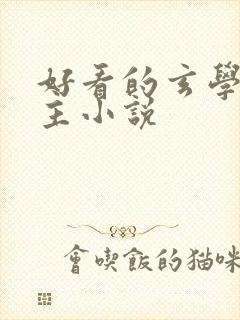 好看的玄學
主小説
會喫飯的猫咪